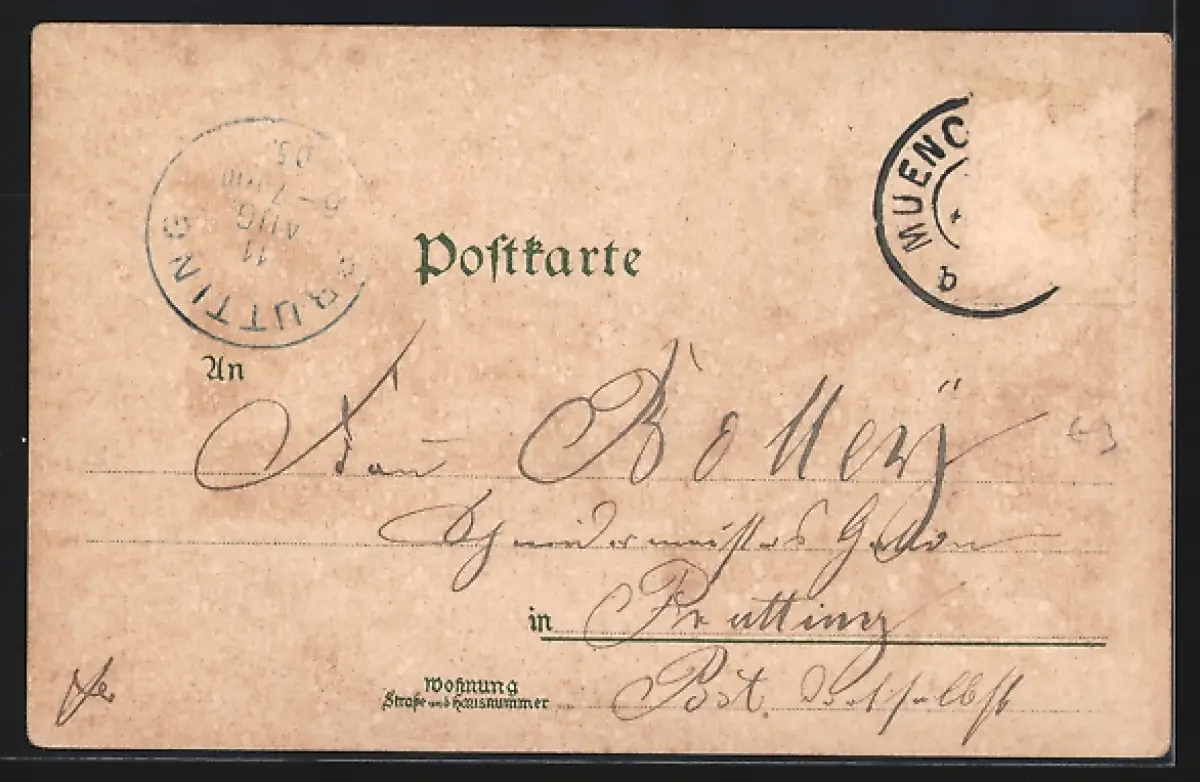 MUENC
PRUTTING
11
AUG
6–7 Nm
05.
Postkarte
An
Frau Bolley
Schneidermeisters
in Prutting
Wohnung
Straße und Hausnummer
Post. daselbst